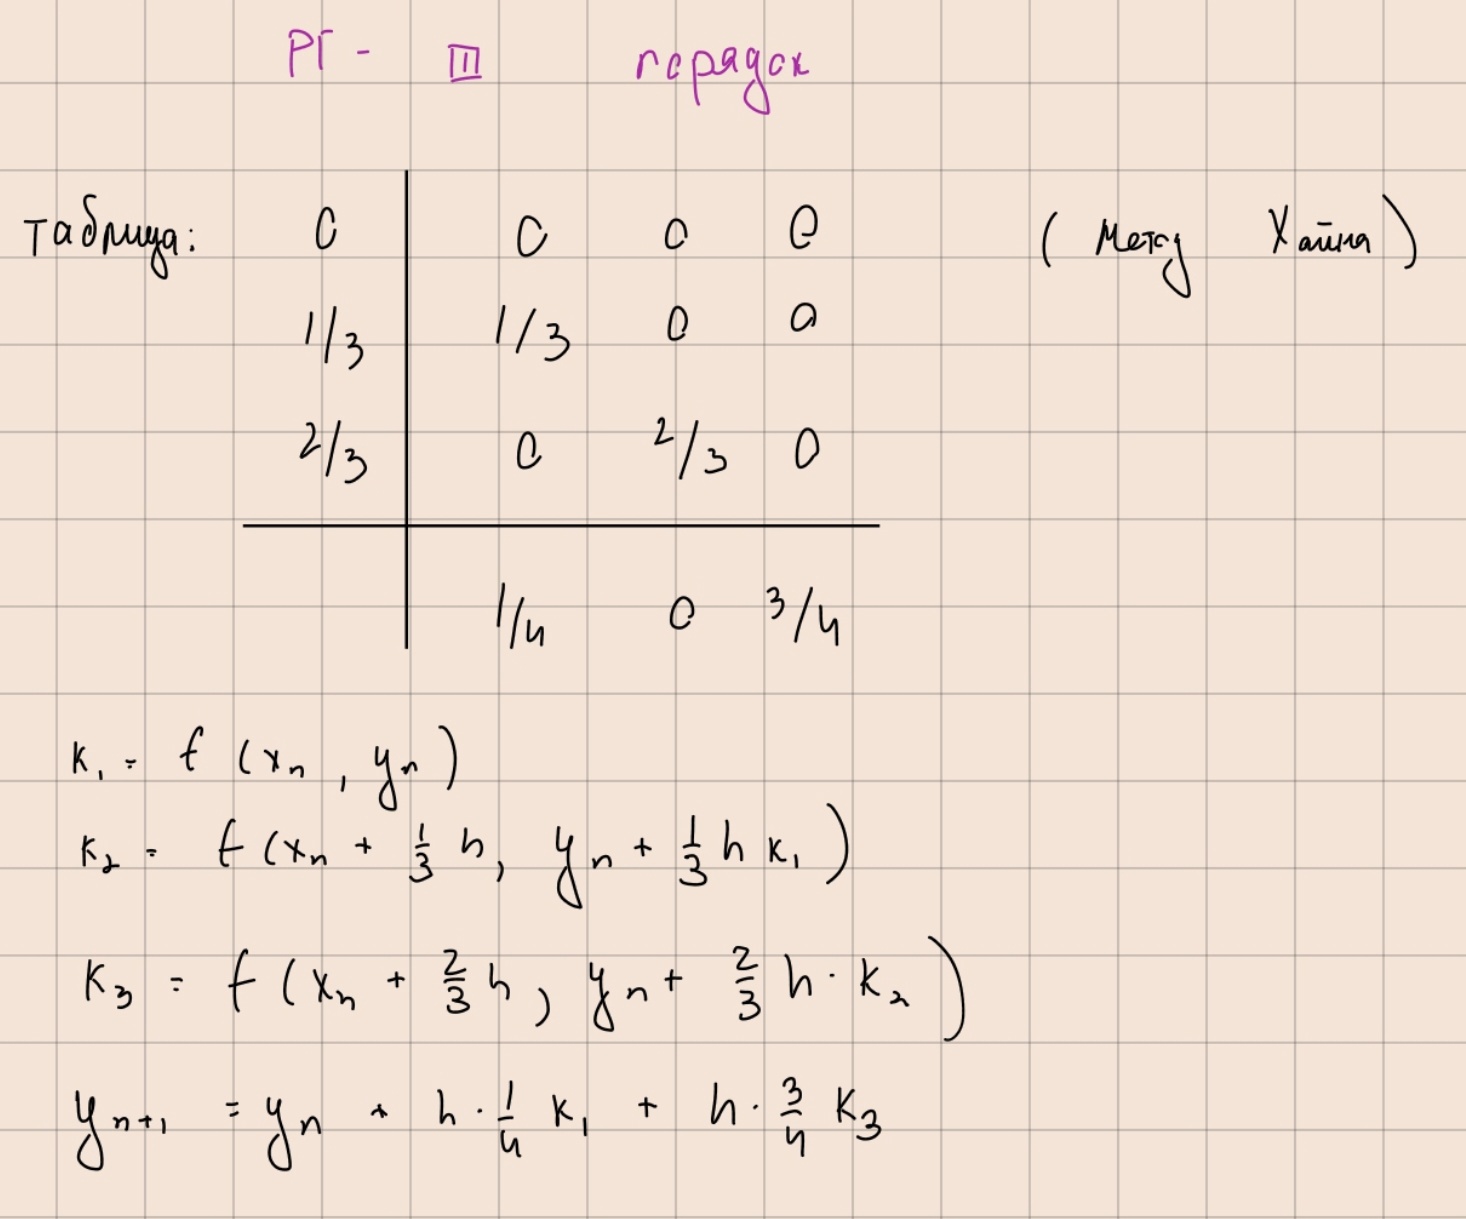 РГ - III порядок
Таблица: 0 | 0 0 0 (Метод Хайна)
1/3 | 1/3 0 0
2/3 | 0 2/3 0
| 1/4 0 3/4
k₁ = f (xₙ, yₙ)
k₂ = f (xₙ + 1/3 h, yₙ + 1/3 h k₁)
k₃ = f (xₙ + 2/3 h, yₙ + 2/3 h · k₂)
yₙ₊₁ = yₙ + h · 1/4 k₁ + h · 3/4 k₃